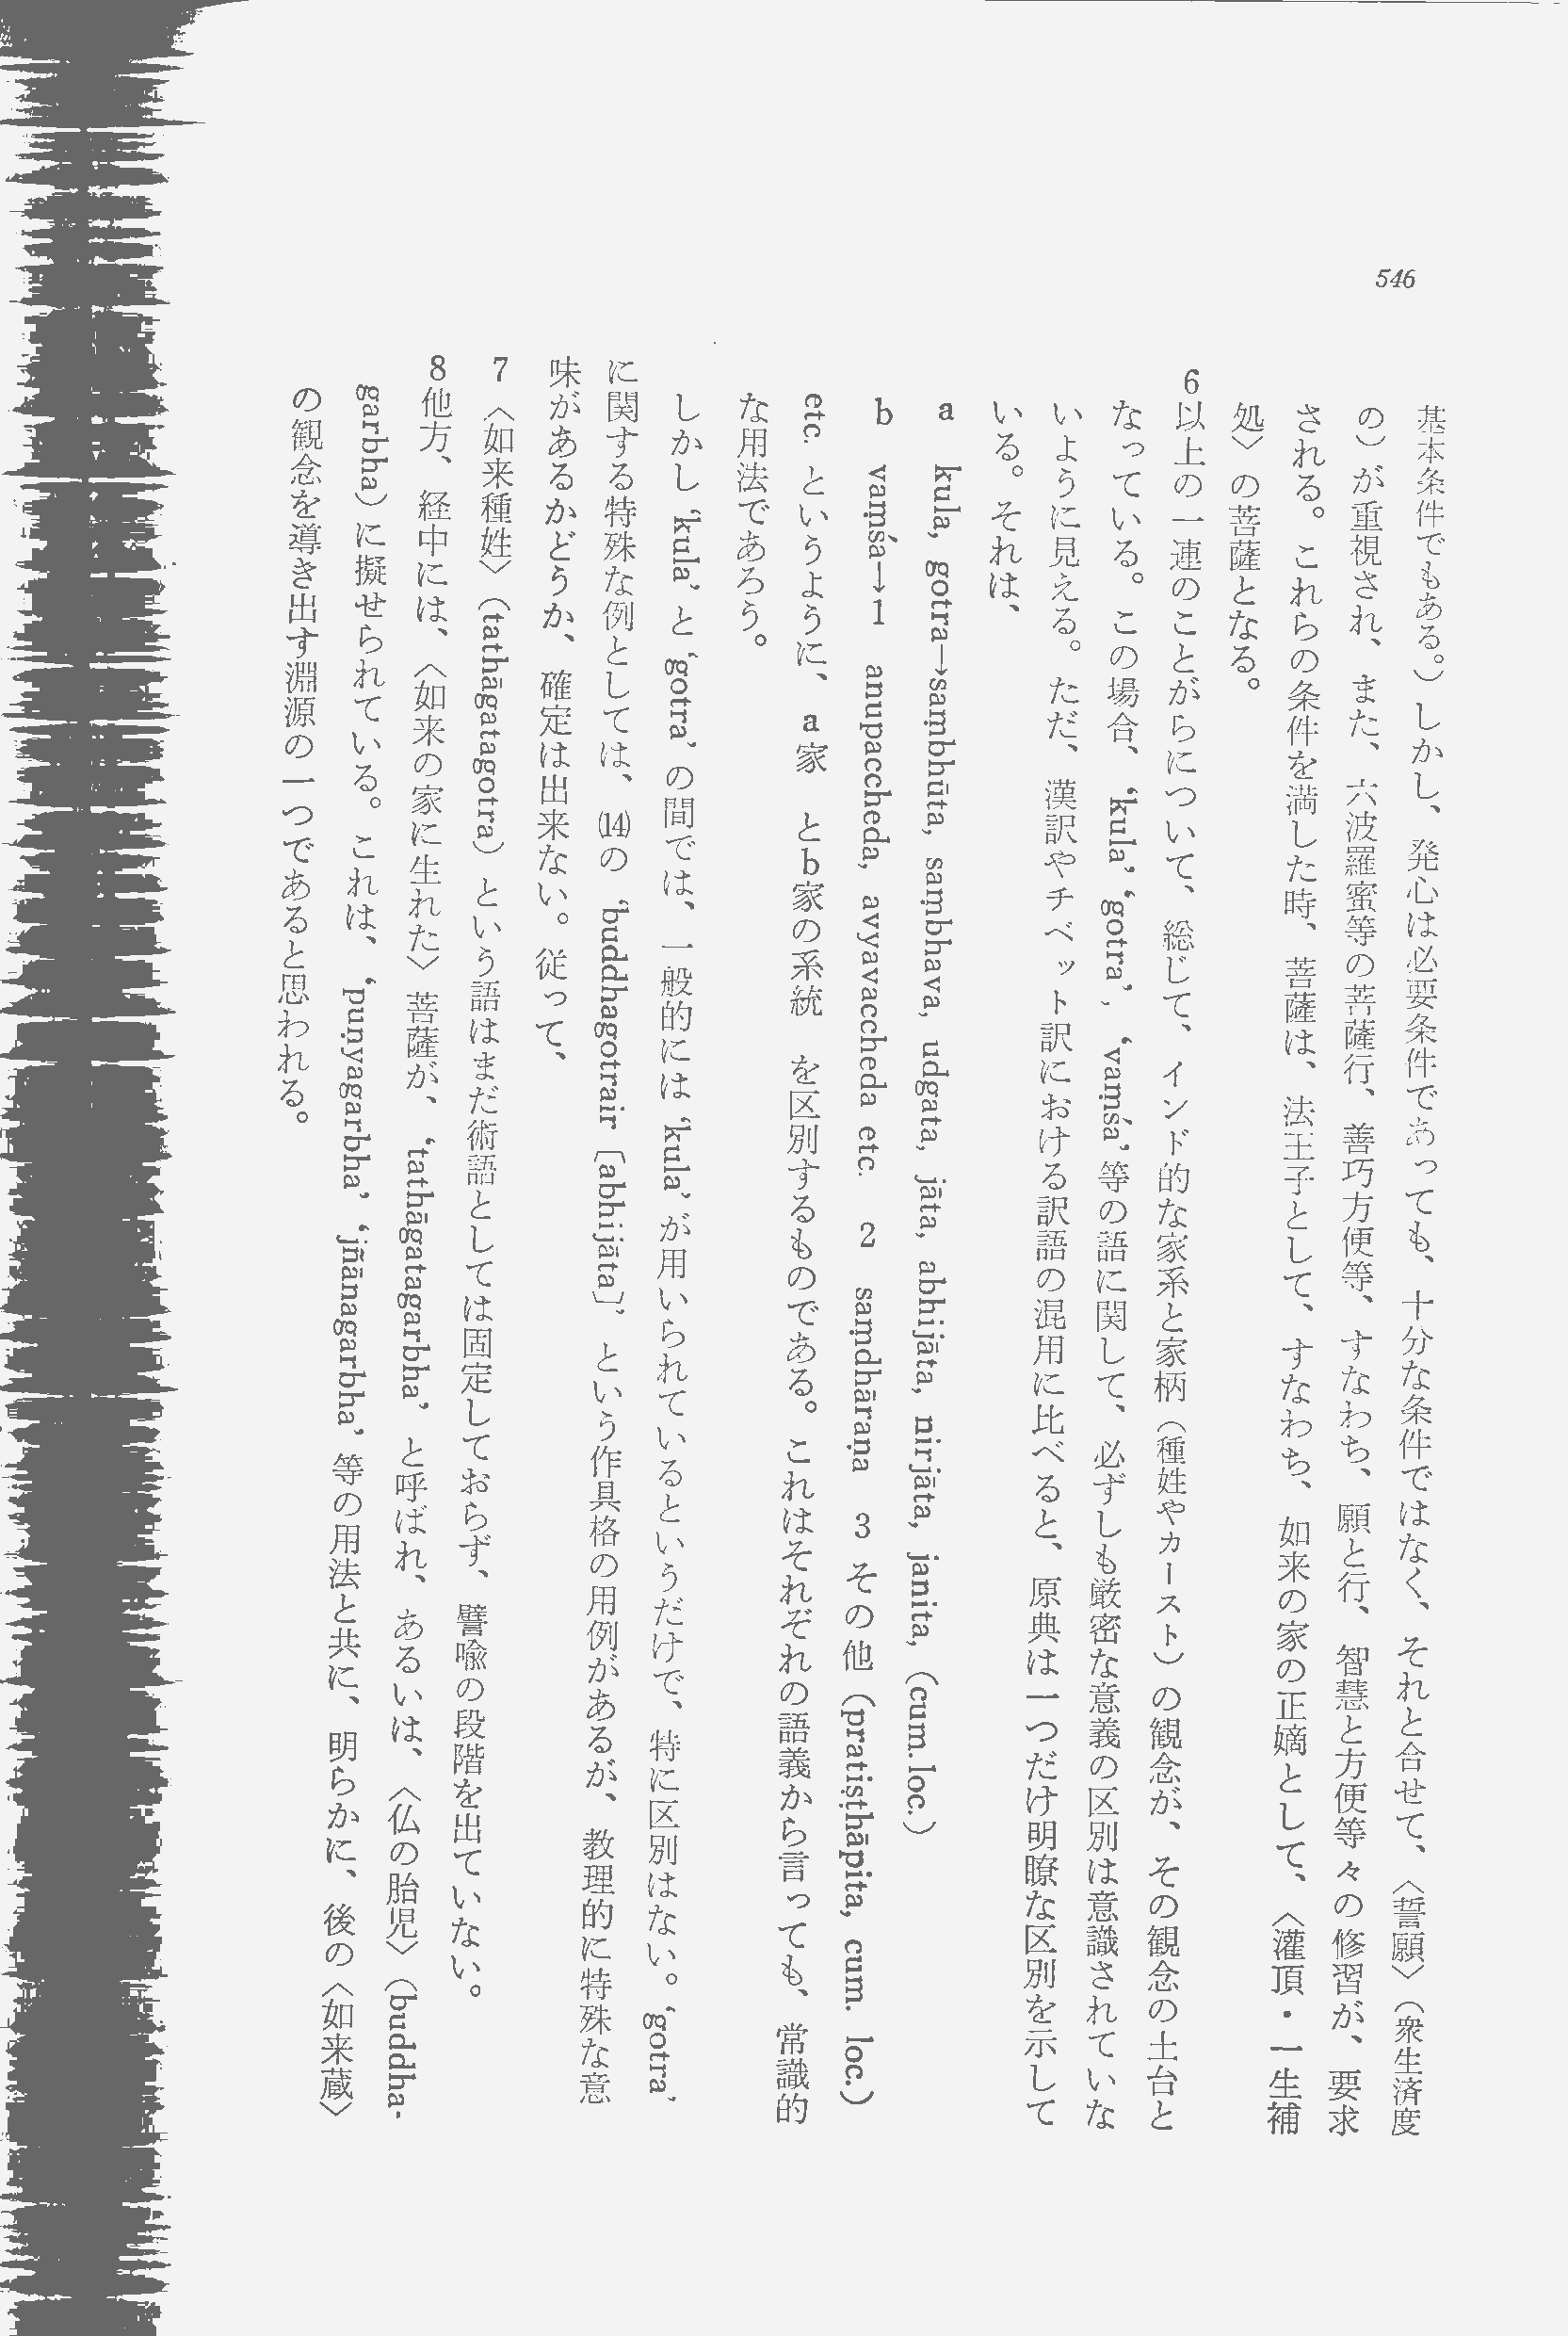 546
基本条件でもある。)しかし、発心は必要条件であっても、十分な条件ではなく、それと合せて、〈誓願〉(衆生済度
の)が重視され、また、六波羅蜜等の菩薩行、善巧方便等、すなわち、願と行、智慧と方便等々の修習が、要求
される。これらの条件を満した時、菩薩は、法王子として、すなわち、如来の家の正嫡として、〈灌頂・一生補
処〉の菩薩となる。
6 以上の一連のことがらについて、総じて、インド的な家系と家柄(種姓やカースト)の観念が、その観念の土台と
なっている。この場合、‘kula’ ‘gotra’, ‘vaṃśa’ 等の語に関して、必ずしも厳密な意義の区別は意識されていな
いように見える。ただ、漢訳やチベット訳における訳語の混用に比べると、原典は一つだけ明瞭な区別を示して
いる。それは、
a kula, gotra→saṃbhūta, saṃbhava, udgata, jāta, abhijāta, nirjāta, janita, (cum. loc.)
b vaṃśa→1 anupaccheda, avyavaccheda etc. 2 saṃdhāraṇa 3 その他 (pratiṣṭhāpita, cum. loc.)
etc. というように、a家 とb家の系統 を区別するものである。これはそれぞれの語義から言っても、常識的
な用法であろう。
しかし ‘kula’ と ‘gotra’ の間では、一般的には ‘kula’ が用いられているというだけで、特に区別はない。‘gotra’
に関する特殊な例としては、⒁の ‘buddhagotrair〔abhijāta〕’ という作具格の用例があるが、教理的に特殊な意
味があるかどうか、確定は出来ない。従って、
7 〈如来種姓〉(tathāgatagotra) という語はまだ術語としては固定しておらず、譬喩の段階を出ていない。
8 他方、経中には、〈如来の家に生れた〉菩薩が、‘tathāgatagarbha’ と呼ばれ、あるいは、〈仏の胎児〉(buddha-
garbha) に擬せられている。これは、‘puṇyagarbha’ ‘jñānagarbha’ 等の用法と共に、明らかに、後の〈如来蔵〉
の観念を導き出す淵源の一つであると思われる。